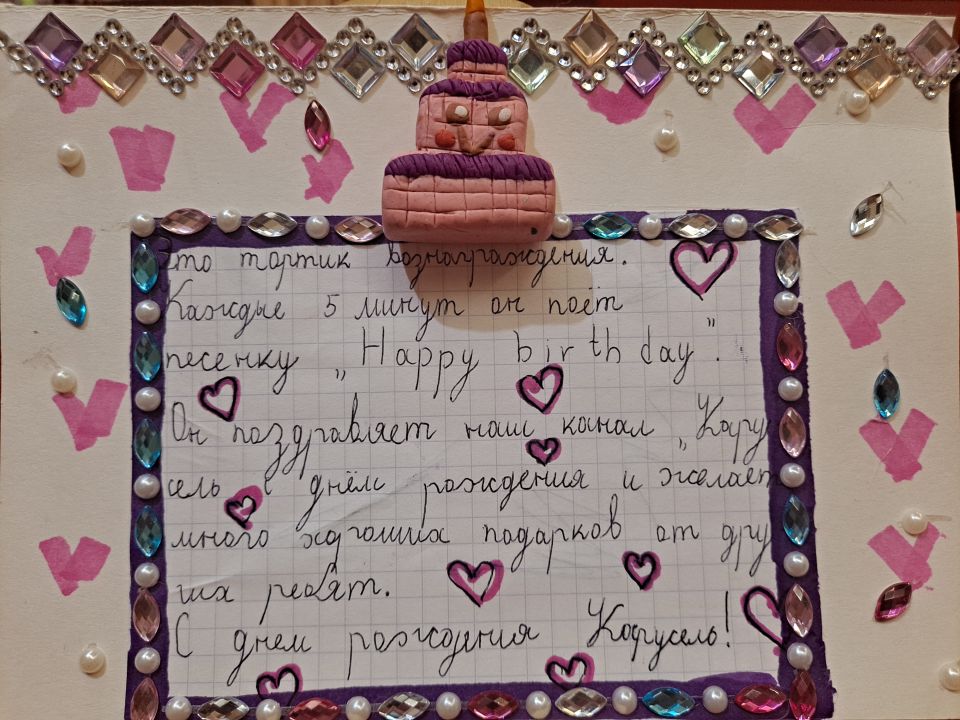 это тортик вознаграждения.
Каждые 5 минут он поёт
песенку „Happy birthday".
Он поздравляет наш канал „Кару
сель с днём рождения и желает
много хороших подарков от дру
гих ребят.
С днем рождения Карусель!